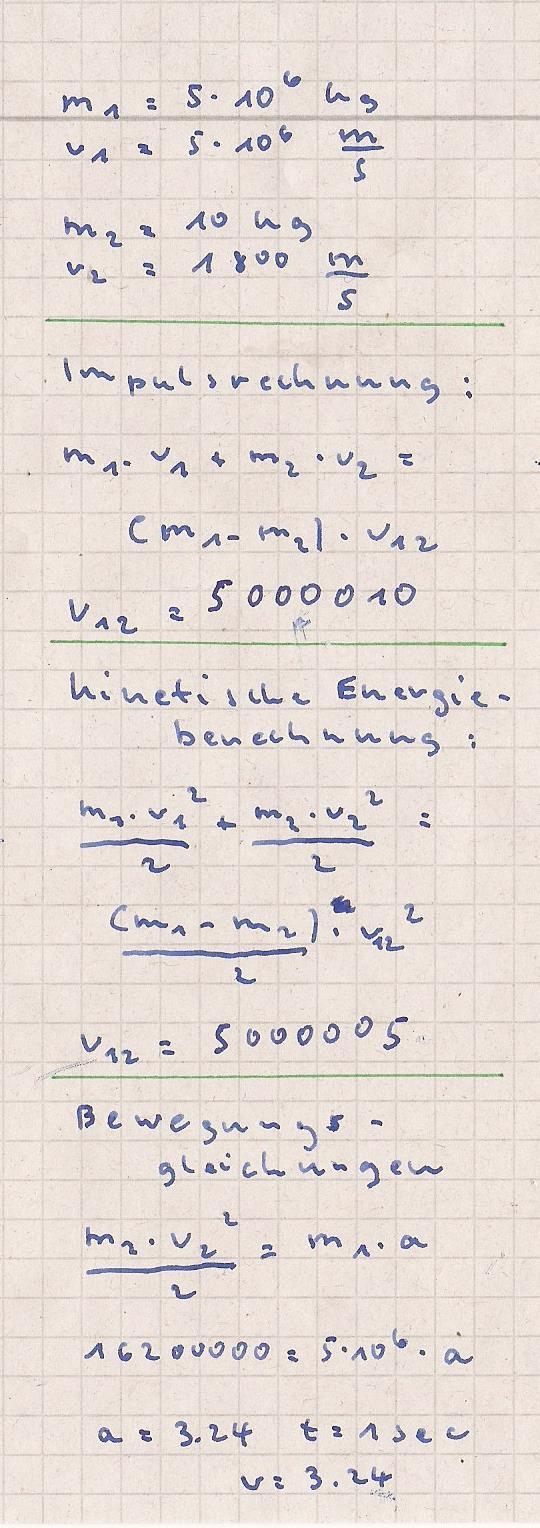 m₁ = 5·10⁶ kg
v₁ = 5·10⁶ m/s
m₂ = 10 kg
v₂ = 1800 m/s
Impulsrechnung:
m₁·v₁ + m₂·v₂ =
(m₁-m₂)·v₁₂
v₁₂ = 5000010
kinetische Energie-
berechnung:
m₁·v₁²/2 + m₂·v₂²/2 =
(m₁-m₂)/2·v₁₂²
v₁₂ = 5000005
Bewegungs-
gleichungen
m₂·v₂²/2 = m₁·a
16200000 = 5·10⁶·a
a = 3.24 t = 1 sec
v = 3.24